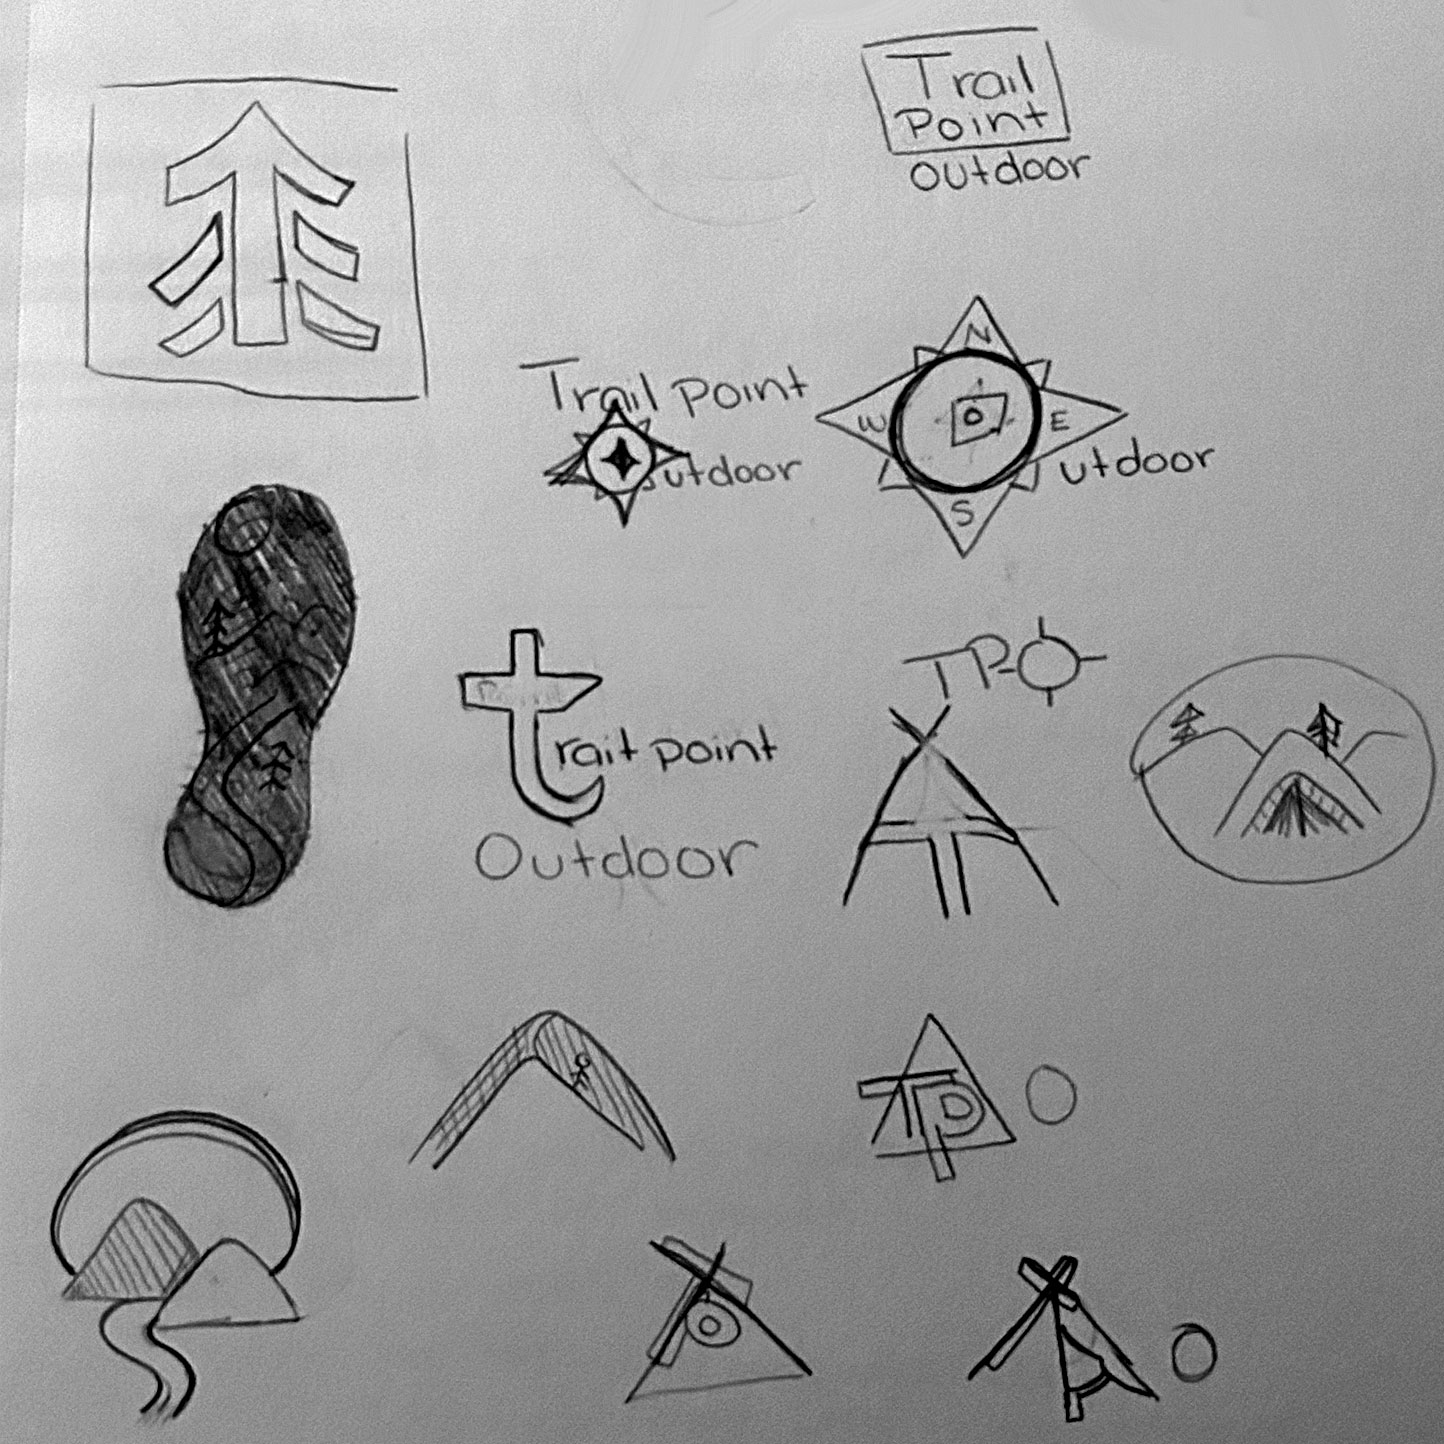 Trail
Point
outdoor
Trail point
utdoor
N
W
E
S
utdoor
Trait point
Outdoor
TPO
TP O